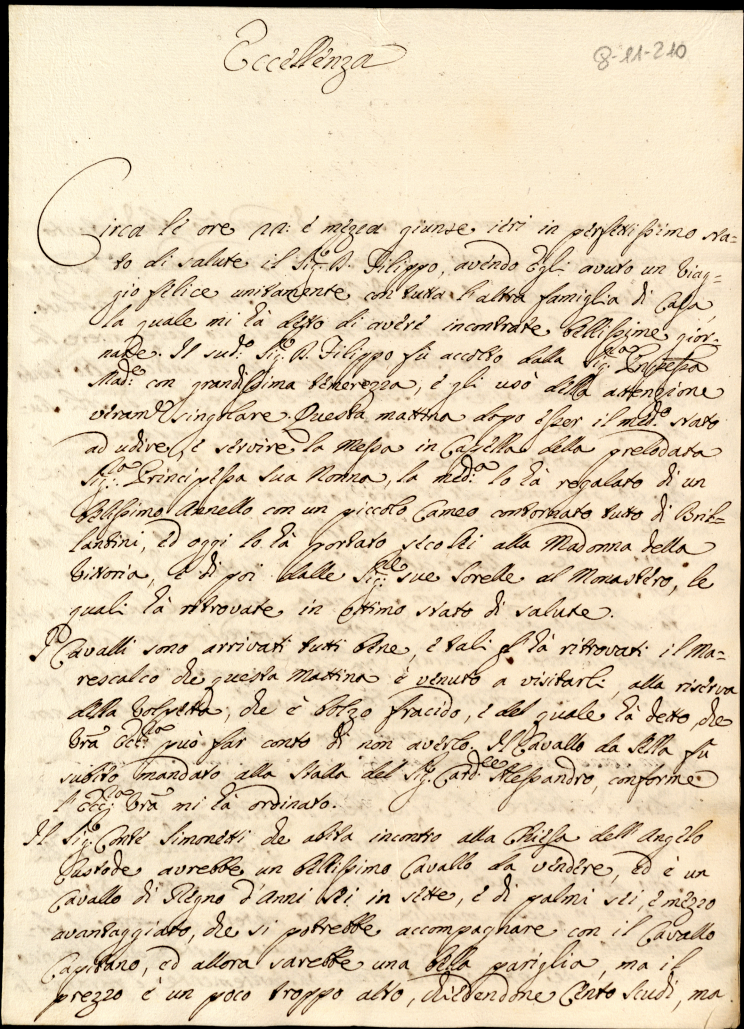 Eccellenza
8-11-210
Circa le ore 22: e mezza giunse ieri in perfettissimo sta=
to di salute il Sig.r D. Filippo, avendo Egli avuto un Viag=
gio felice unitamente con tutta l'altra famiglia di Casa
la quale mi hà detto di avere incontrate bellissime gior=
nate. Il sud.o Sig.r D. Filippo fù accolto dalla Sig.ra Pnpessa
Mad.e con grandissima tenerezza, e gli usò della attenzione
veram.te singolare. Questa mattina dopo esser il med.o stato
ad udire, e servire la Messa in Capella della prelodata
Sig.ra Principessa sua Nonna, la med.a lo hà regalato di un
bellissimo Anello con un piccolo Cameo contornato tutto di Bril=
lantini, ed oggi lo hà portato seco lei alla Madonna della
Vittoria, e di poi dalle Sig.re sue Sorelle al Monastero, le
quali hà ritrovate in ottimo stato di salute.
I Cavalli sono arrivati tutti bene, e tali gl'hà ritrovati il Ma=
rescalco che questa Mattina è venuto a visitarli, alla riserva
della Volpetta, che è bolzo fracido, e del quale hà detto, che
Vrã Ecc.za può far conto di non averlo. Il Cavallo da sella fù
subito mandato alla Stalla del Sig.r Card.le Alessandro, conforme
l'Ecc.za Vrã mi hà ordinato.
Il Sig.r Conte Simonetti che abita incontro alla Chiesa dell'Angelo
Custode avrebbe un bellissimo Cavallo da vendere, ed è un
Cavallo di Regno d'Anni sei in sette, e di palmi sei, e mezzo
avantaggiato, che si potrebbe accompagnare con il Cavallo
Capitano, ed allora sarebbe una bella pariglia, ma il
prezzo è un poco troppo alto, chiedendone Cento scudi, ma